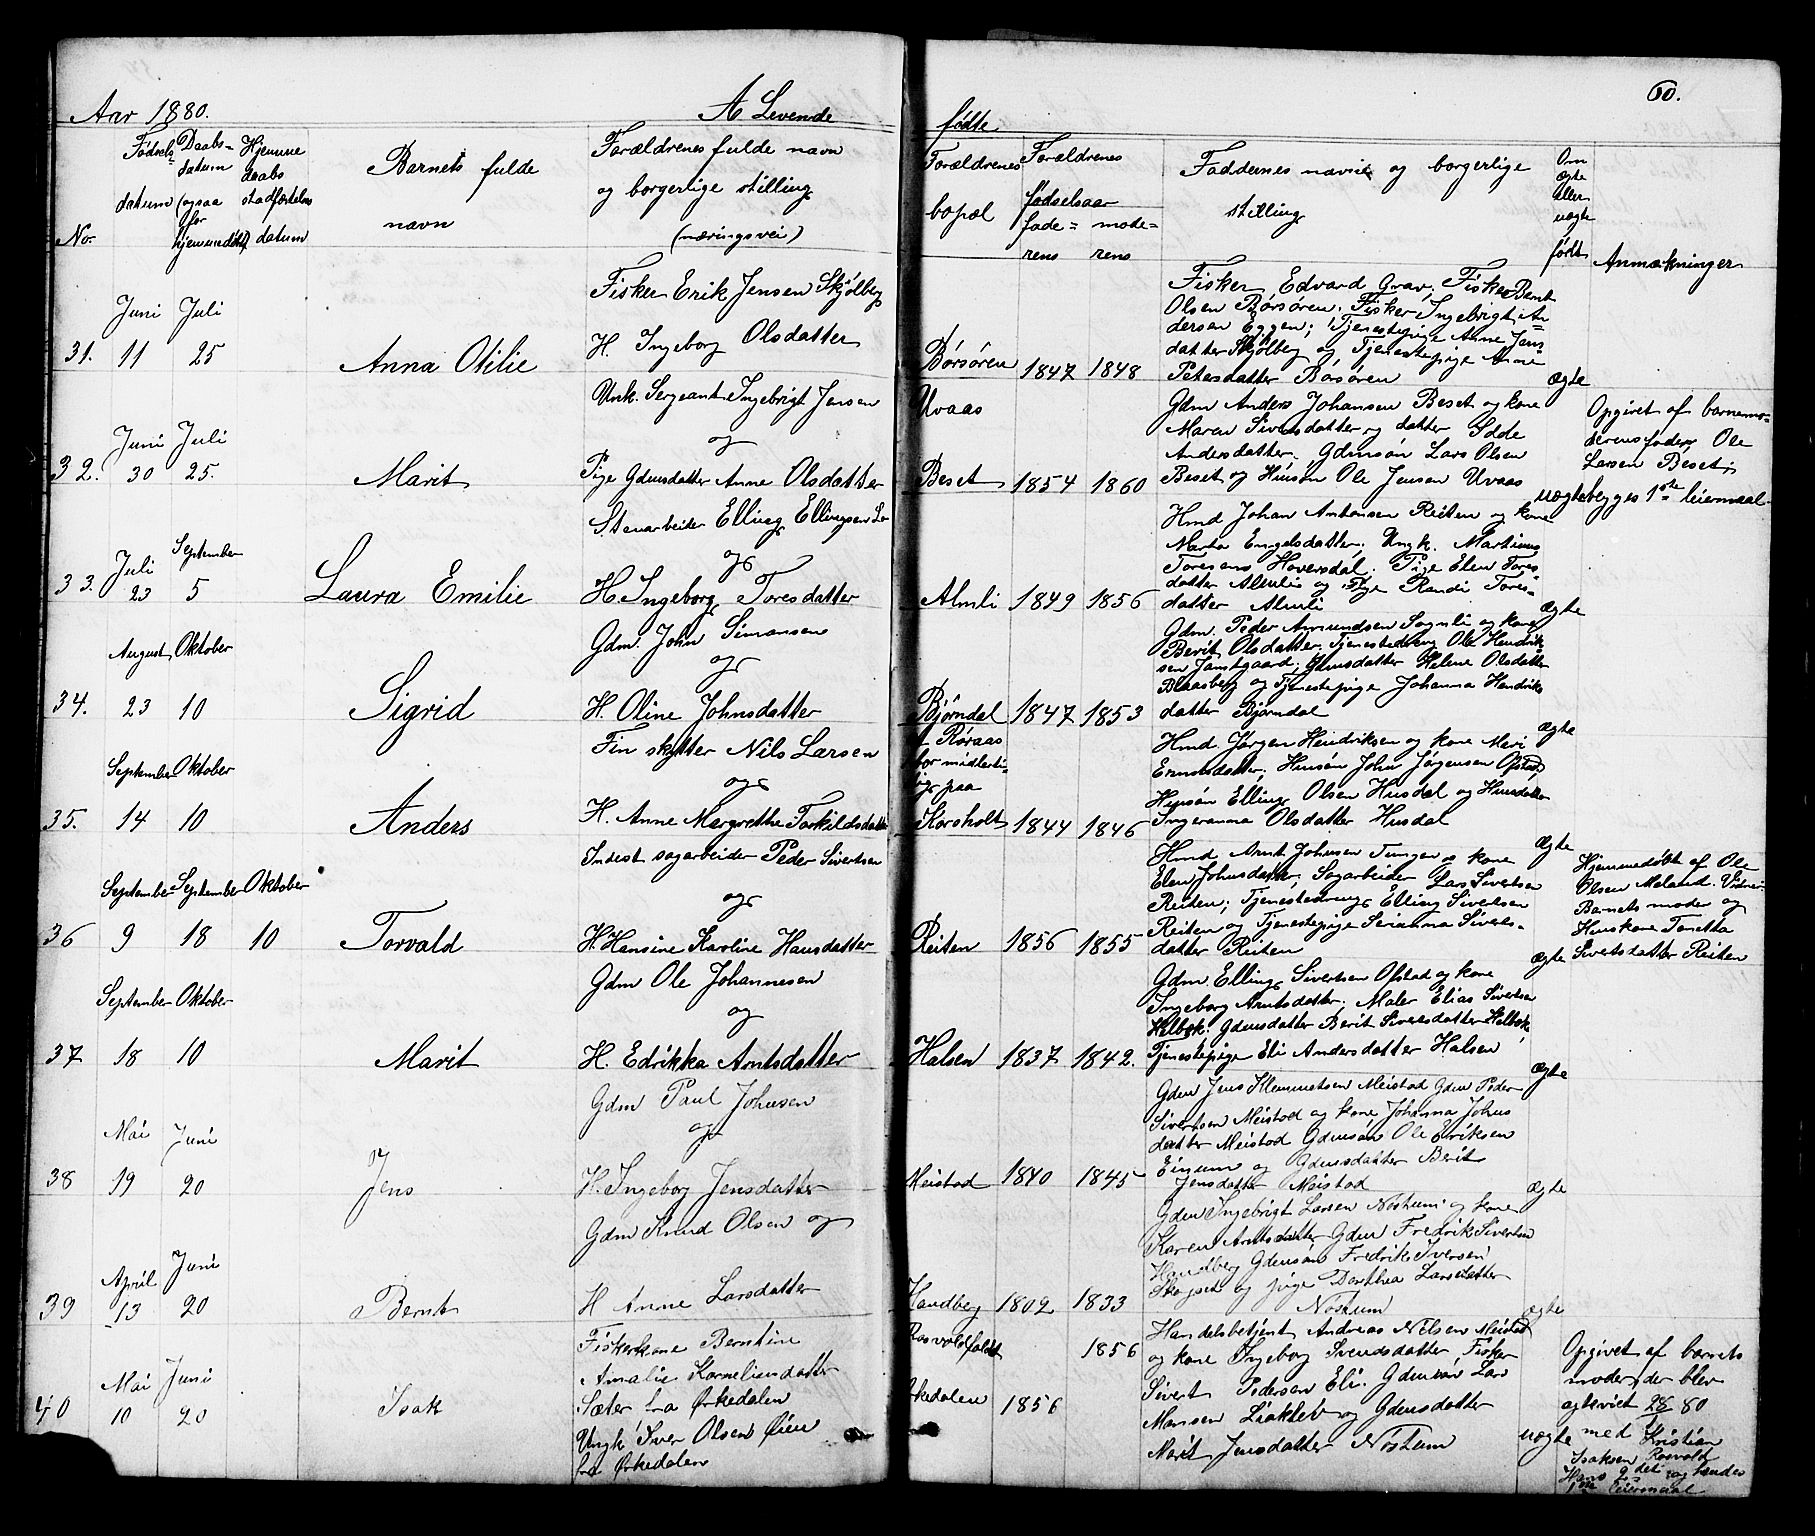 Aar 1880.
A Levende
No.
Fødsels-
datum
Daabs-
datum
(ogsaa
for
hjemmedøbt)
Hjemme
daabs
stadfæstelses
datum
Barnets fulde
navn
Forældrenes fulde navn
og borgerlige stilling
(næringsvei)
31.
Juni
11
Juli
25
Anna Otilie
Fisker Erik Jensen Skjølberg
H. Ingeborg Olsdatter
32.
Juni
30
Juli
25.
Marit
Unk. Sergeant Ingebrigt Jensen
og
Pige Gdmsdatter Anne Olsdatter
33.
Juli
23
September
5
Laura Emilie
Stenarbeider Elling Ellingsen Lo
og
H Ingeborg Toresdatter
34.
August
23
Oktober
10
Sigrid
Gdm. John Simonsen
og
H. Oline Johnsdatter
35.
September
14
Oktober
10
Anders
Fin skytter Nils Larsen
og
H. Anne Margrethe Torkildsdatter
36
September
9
September
18
Oktober
10
Torvald
Inderst sagarbeider Peder Sivertsen
og
H. Hansine Karoline Hansdatter
37
September
18
Oktober
10
Marit
Gdm Ole Johannesen
og
H. Edrikka Arntsdatter
38
Mai
19
Juni
20
Jens
Gdm Paul Johnsen
og
H. Ingeborg Jensdatter
39
April
13
Juni
20
Bernt
Gdm Knud Olsen og
H Anne Larsdatter
40
Mai
10
Juni
20
Isak
Fiskerkone Berntine
Amalie Korneliusdatter
Sæter fra Ørkedalen
Ungk Iver Olsen Øien
fra Ørkedalen
60.
fødte
Forældrenes
bopæl
Forældrenes
fødselsaar
fade-
rens
mode-
rens
Faddernes navne og borgerlige
stilling
Om
ægte
eller
uægte
født
Anmækninger
Børsøren 1847 1848
Fisker Edvard Grav; Fisker Bernt
Olsen Børsøren. Fisker Ingebrigt An-
dersen Eggen; Tjenestepige Anne Jens
datter Skjølberg og Tjenestepige Anne
Petersdatter Børsøren
Ægte
Uvaas
Beset 1854 1860
Gdm Anders Johansen Beset og kone
Maren Sivertsdatter og datter Gdde
Andersdatter. Gdmsøn Lars Olsen
Beset og Husøn Ole Jensen Uvaas
uægte
Opgivet af barnemo-
derens fader Ole
Larsen Beset;
begges 1ste leiermaal.
Almli 1849 1856
Hmd Johan Antonsen Reiten og kone
Marta Engelsdatter; Ungk. Martinus
Toresens Hoversdal. Pige Elen Tores
datter Almli og Pige Randi Tores-
datter Almli
Ægte
Bjørndal 1847 1853
Gdm. Peder Amundsen Sognli og kone
Berit Olsdatter. Tjenestedreng Ole Hendrik
sen Jamtgaard; Gdmsdatter Helene Olsdatter
Blaasberg og Tjenestepige Johanna Hendriks
datter Bjørndal
Ægte
Røraas
bor midlerti-
dig paa
Korsholt 1844 1846
Hmd Jørgen Hendriksen og kone Meri
Ernstsdatter; Husøn John Jørgensen Ofstad
Husøn Elling Olsen Husdal og Husdatter
Ingeranna Olsdatter Husdal
Ægte
Reiten 1856 1855
Hmd Arnt Johnsen Tungen og kone
Elen Johnsdatter; Sagarbeider Lars Sivertsen
Reiten; Tjenestedreng Elling Sivertsen
Reiten og Tjenestepige Serianna Siverts-
datter Reiten
Ægte
Hjemmedøbt af Ole
Olsen Meland. Vidner
Barnets moder og
Huskone Tonetta
Sivertsdatter Reiten
Halsen 1837 1842.
Gdm Elling Sivertsen Ofstad og kone
Ingeborg Arntsdatter. Maler Elias Sivertsen
Kelbok. Gdmsdatter Berit Sivertsdatter Kelbok,
Tjenestepige Eli Andersdatter Halsen
Ægte
Meistad 1840 1845
Gdm Jens Klemmetsen Meistad Gdm Peder
Sivertsen Meistad og kone Johanna Johns
datter Meistad Gdmsøn Ole Eriksen
Einum og Gdmsdatter Berit
Jensdatter Meistad
Ægte
Handberg 1802 1833
Gdm Ingebrigt Larsen Nostum og kone
Karen Arntsdatter Gdm Fredrik Sivertsen
Handberg Gdmsøn Fredrik Iversen
Skogset og pige Dorthea Larsdatter
Nostum
ægte
Rosvoldfald
1856
Ørkedalen 1856
Handelsbetjent Andreas Nilsen Meistad
og kone Ingeborg Svendsdatter Fisker
Sivert Pedersen Eli. Gdmsøn Lars
Monsen Liakleb og Gdmsdatter
Marit Jensdatter Nostum
uægte
Opgivet af barnets
moder, der blev
agtevviet 28/ 80
med Kristian
Isaksen Rosvold
Hans 2det og hendes
1ste leiermaal